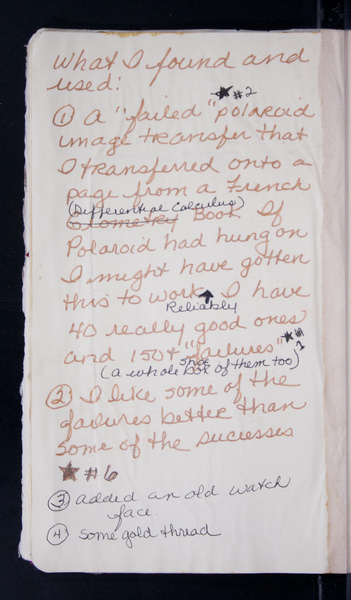 What I found and
used:
★#2
① A "failed" polaroid
image transfer that
I transferred onto a
page from a French
(Differential Calculus)
Geometry Book. If
Polaroid had hung on
I might have gotten
this to work I have
Reliably
40 really good ones
and 150+ "failures" ★#1
shoe
(a whole box of them too)
② I like some of the
failures better than
some of the successes
★#6
③ added an old watch
face.
④ some gold thread